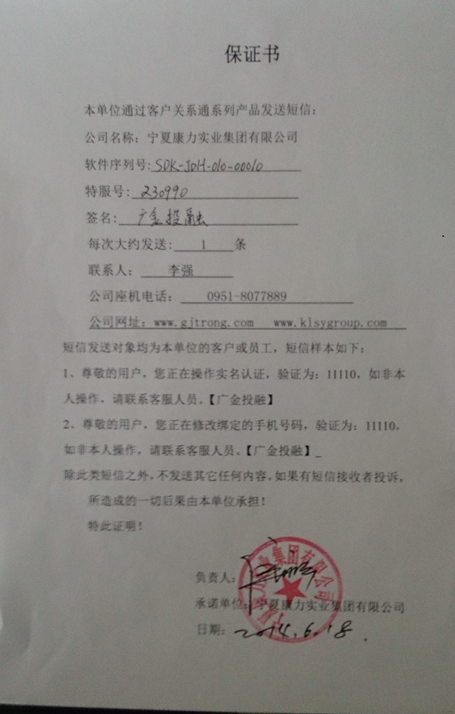 保证书
本单位通过客户关系通系列产品发送短信：
公司名称：宁夏康力实业集团有限公司
软件序列号：SDK-JDH-010-00010
特服号：230990
签名：广金投融
每次大约发送：1 条
联系人：李强
公司座机电话：0951-8077889
公司网址：www.gjtrong.com www.klsygroup.com
短信发送对象均为本单位的客户或员工，短信样本如下：
1、尊敬的用户，您正在操作实名认证，验证为：11110，如非本
人操作，请联系客服人员。【广金投融】
2、尊敬的用户，您正在修改绑定的手机号码，验证为：11110，
如非本人操作，请联系客服人员。【广金投融】
除此类短信之外，不发送其它任何内容。如果有短信接收者投诉，
所造成的一切后果由本单位承担！
特此证明！
负责人：
承诺单位：宁夏康力实业集团有限公司
日期：2014.6.18.